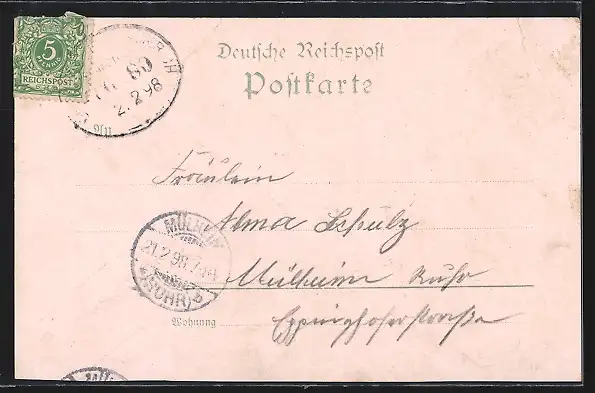 5
PFENNIG
REICHSPOST
2.2.98
Deutsche Reichspost
Postkarte
An
Fräulein
Alma Schulz
MÜLHEIM
21.2.98.
(RUHR)
Mülheim Ruhr
Wohnung
Eppinghoferstrasse